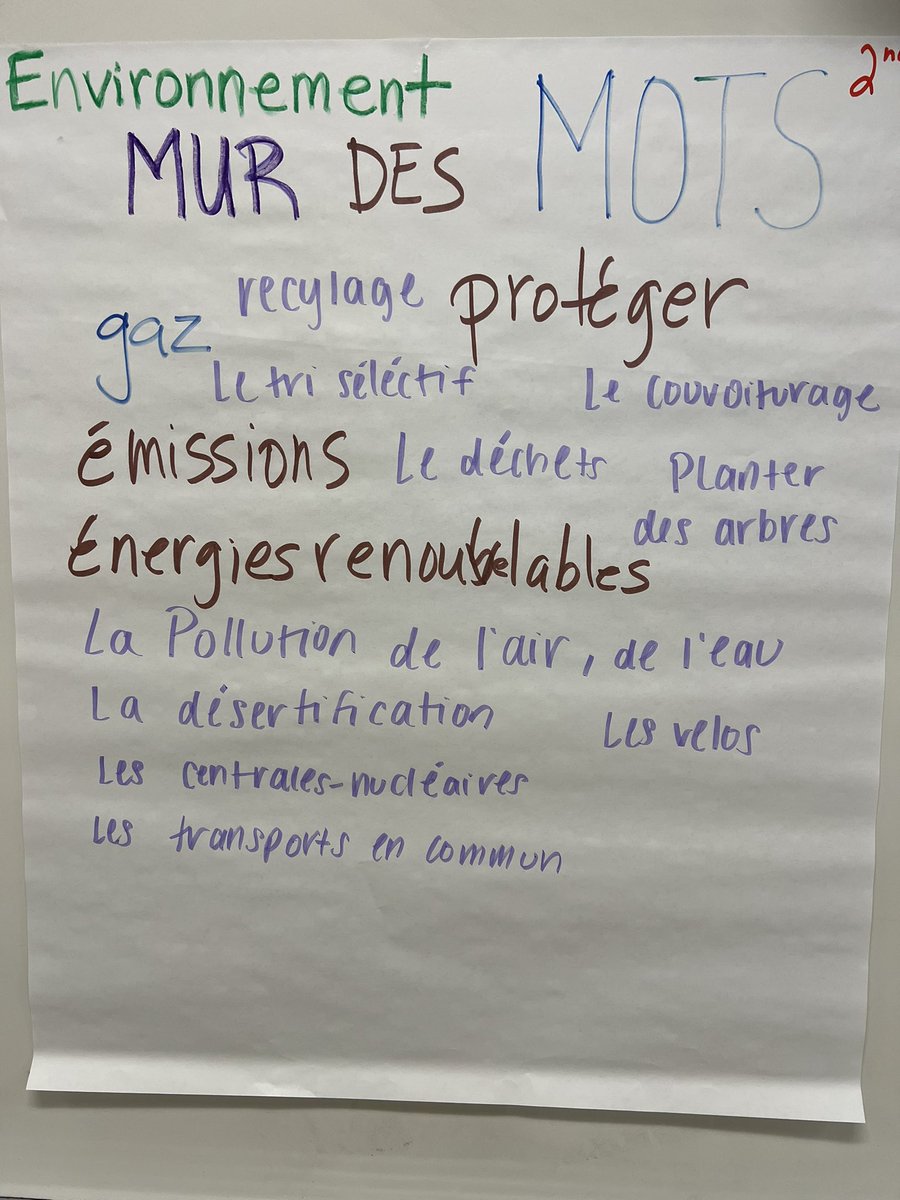 Environnement
2nd
MUR DES MOTS
recylage protéger
gaz
Le tri séléctif
Le couvoiturage
émissions
Le déchets
Planter
des arbres
Énergies renoubelables
La Pollution de l'air, de l'eau
La désertification
Les velos
Les centrales-nucléaires
Les transports en commun